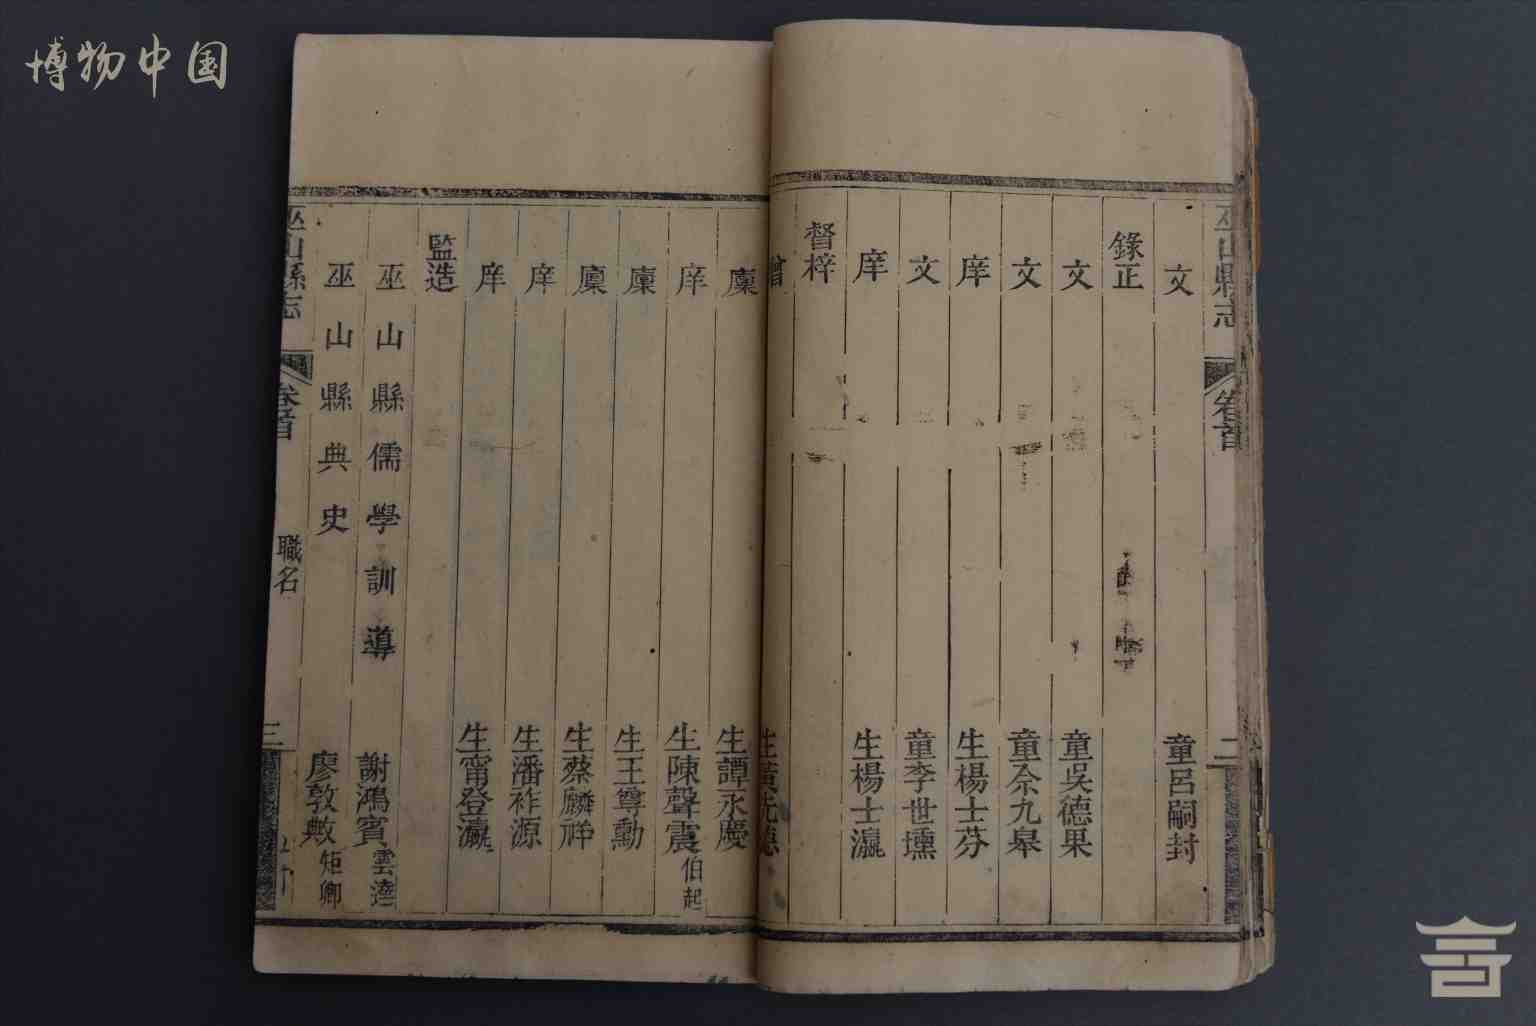 博物中国
巫山縣志 卷首 二
文 童呂嗣封
錄正
文 童吳德果
文 童佘九皋
庠 生楊士芬
文 童李世壎
庠 生楊士瀛
督梓
增 生黃先德
廩 生譚永慶
庠 生陳聲震 伯起
廩 生王尊勳
廩 生蔡麟祥
庠 生潘祚源
庠 生甯登瀛
監造
巫山縣儒學訓導 謝鴻賓 雲逵
巫山縣典史 廖敦敷 矩卿
巫山縣志 卷首 職名 三